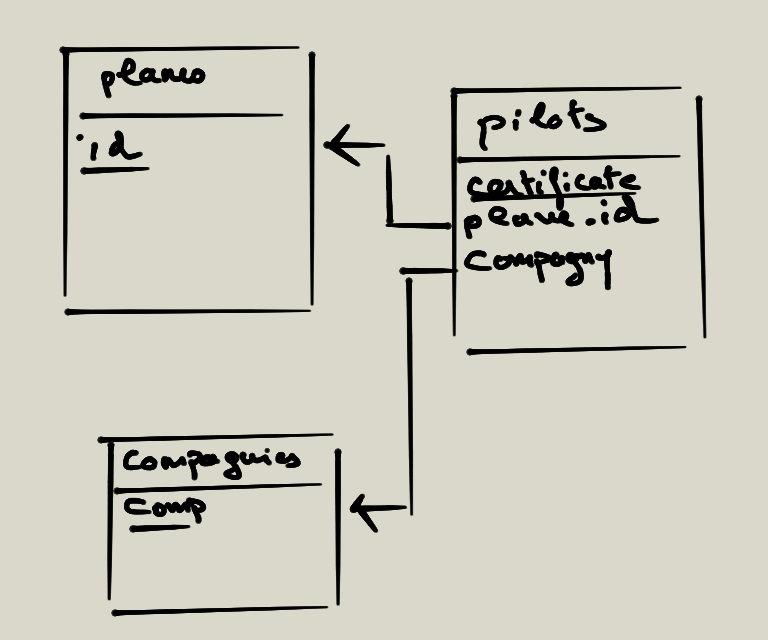 planes
id
pilots
certificate
plane.id
Compagny
Compagnies
Comp